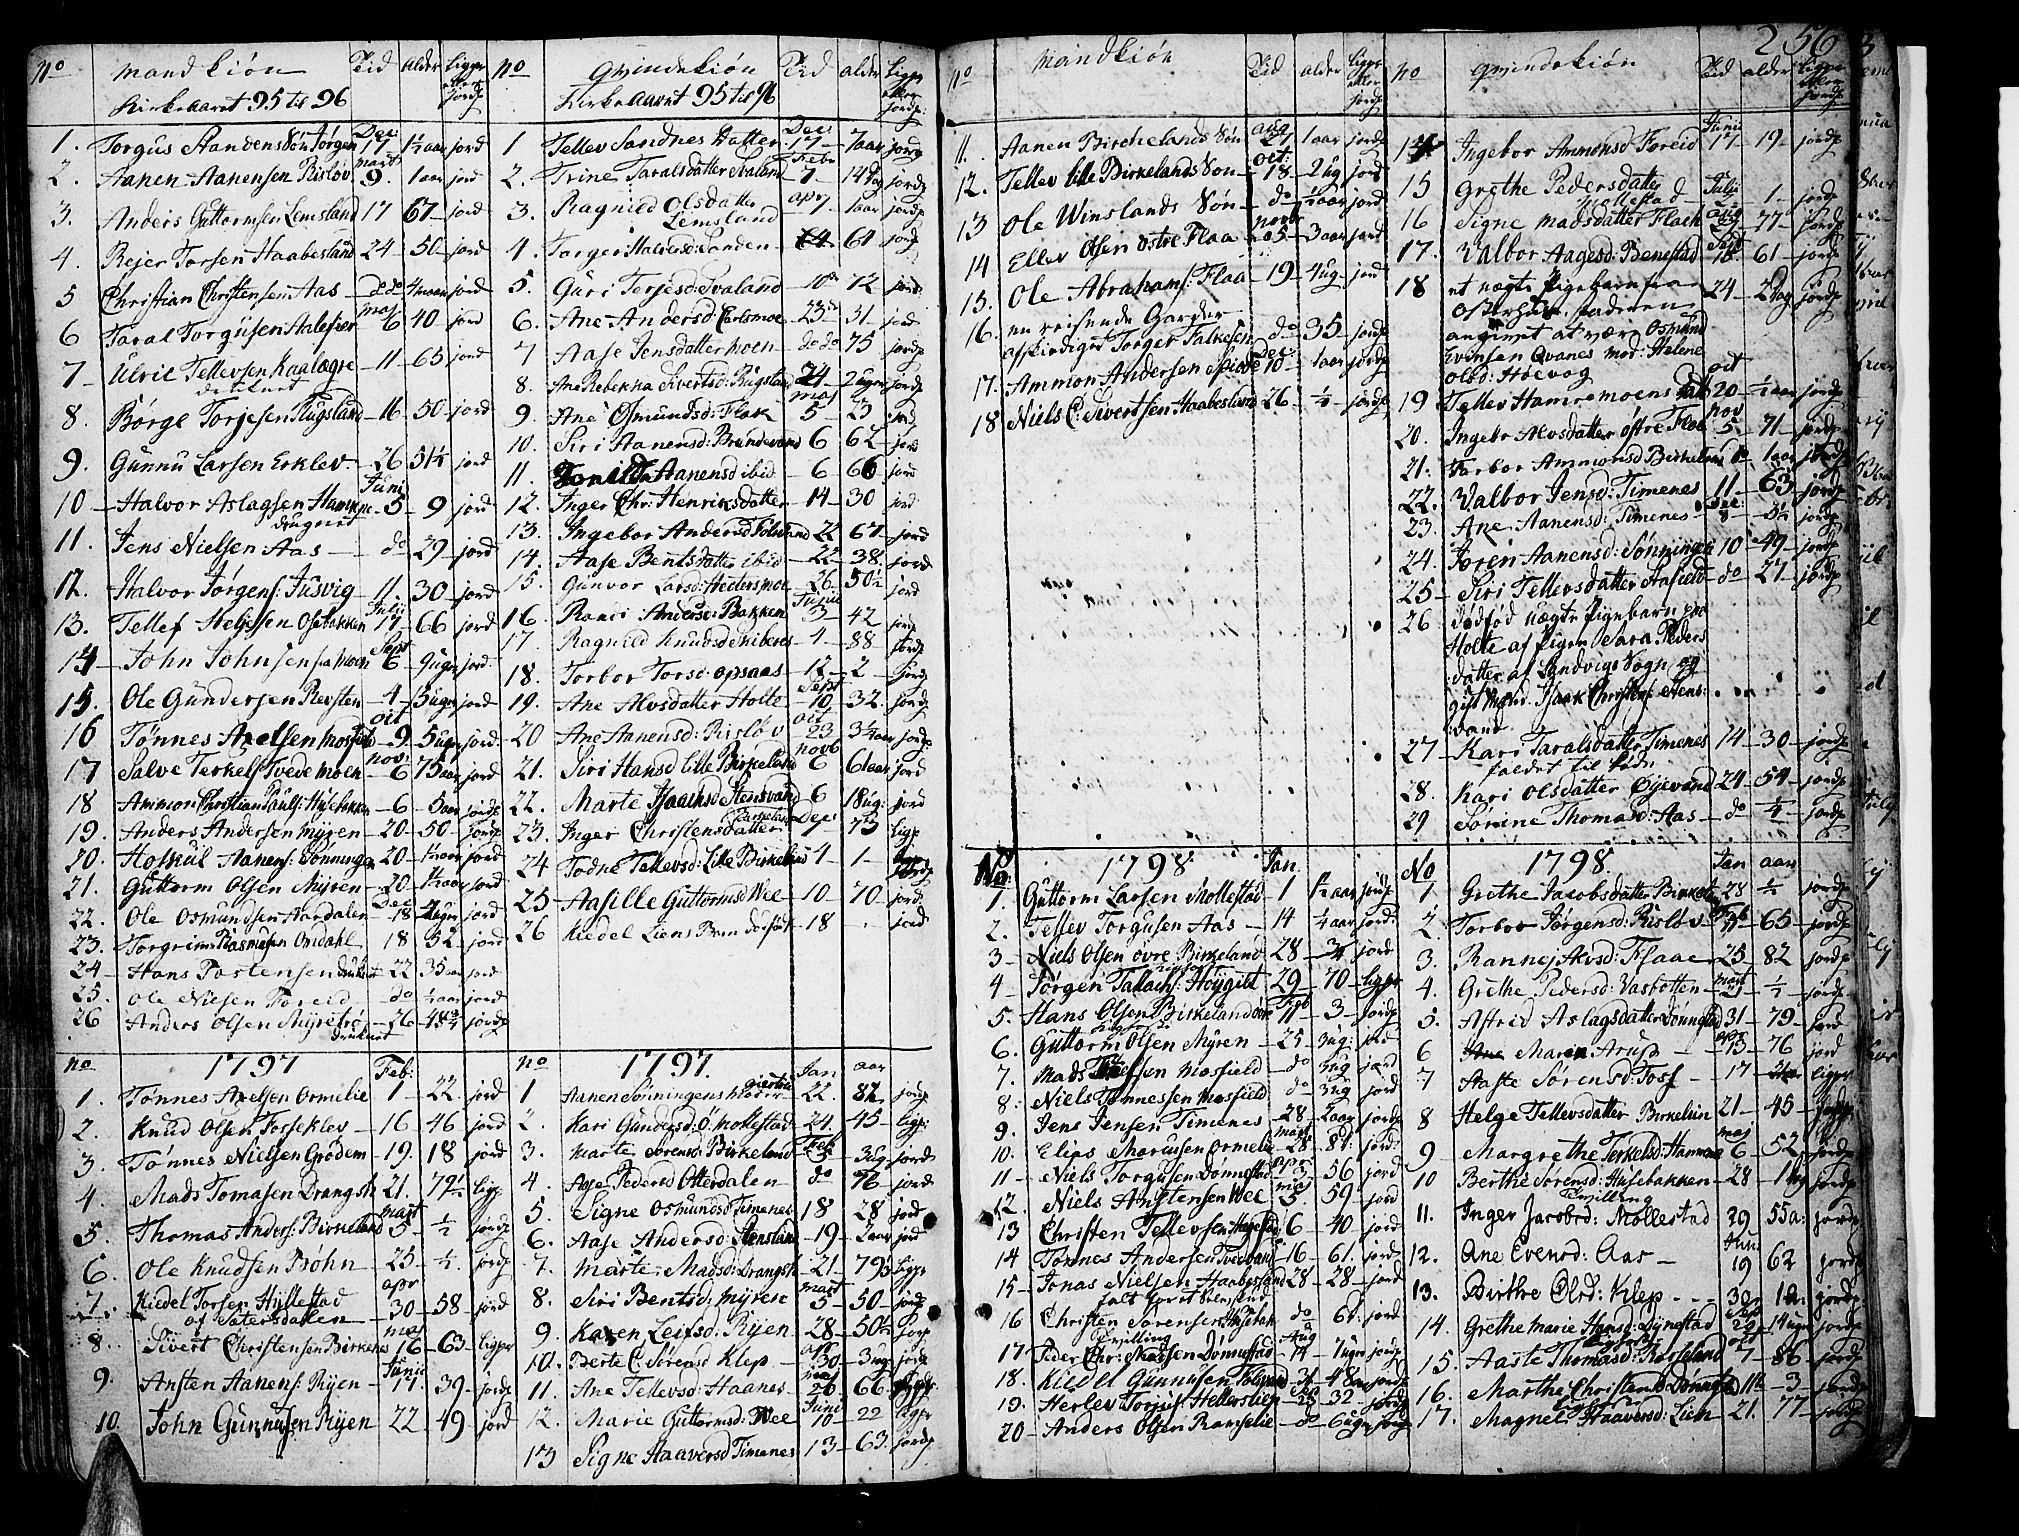 256
No Mandkiön Tid alder ligge eller jords
Kirkeaaret 95 til 96
1. Torgus Aandens Sön Dec: 17 1½ aar jord
2. Aanen Aanensen Rislöv mart 9. 1 aar jord
3. Anders Guttormsen Lemsland 17 67 jord
4. Rejer Torsen Haabesland 24 50 jord
5 Christian Christensen Aas do do 4 maan jord
6 Taral Torgusen Aalefier maj 6 40 jord
7 Ulric Tellevsen Kaalagre 11 65 jord
druknet
8. Börge Torjesen Flugsland 16 50 jord
9. Gunnu Larsen Erklev 26 51¼ jord
10 Halvor Aslagsen Juni 5 9 jord
druknet
11. Jens Nielsen Aas do 29 jord
12. Halvor Jörgens: Jusvig 11 30 jord
13. Tellef Heljesen Osebakken Julii 17 66 jord
14 John Johnsen fra Moen Sept 6 9 ugr jord
15. Ole Gundersen Revsten 4 15 ugr jord
16 Tönnes Axelsen Mosfield oct 9 5 ugr jord
17 Salve Terkels: Tvedemoen nov: 6 75 aar jord
18 Ammon Christian Pauls: Husebakken 6 5 aar jord
19. Anders Andersen Myren 20 50 jord
20. Hoskul Aanens: Sönningen 20 jord
21. Guttorm Olsen Myren 20 jord
22. Ole Osmundsen Aardalen Dec 18 jord
23. Torgrim Rasmusen Omdahl 18 52 jord
24 Hans Tostensen druknet 22 35 jord
25. Ole Nielsen Foreid do ¼ aar jord
26 Anders Olsen Myrebrö 26 48¾ jord
druknet
No Qvindekiön Tid alder ligge eller jords
Kirkeaaret 95 til 96
1 Tellev Sandnes Datter Dec: 17 7 aar jord
2. Trine Taralsdatter Svaland Febr 7 14 dag jord
3. Ragnild Olsdatter apr 7 1 aar jord
Lemsland
4. Torger Halvorsd: Landen 24 61 jord
5. Guri Terjesd: Svaland 10 72 jord
6. Ane Andersd: Carlsmoe 23 31 jord
7 Aase Jensdatter Moen do do 75 jord
8. Ane Rebekka Sivertsd: Rugsland 24 2 ugr jord
9. Ane Osmundsd: Flak maj 5 23 jord
10. Siri Aanensd: Brundevand 6 62 jord
11. Aanensd ibid 6 66 jord
12. Inger Chr: Henriksdatter 14 30 jord
13. Ingebor Andersd 22 67 jord
14. Aase Bentsdatter ibid 22 38. jord
15. Gunvor Larsd: Heidersmoe 26 50½ jord
16. Randi Andersd: Bakken Junii 3 42 jord
17. Ragnild Knudsd Skiberes 4 88 jord
18. Torbor Torsd: Opsaas 12 2 jord
19. Ane Alvsdatter Holte Sept 10 32 jord
20 Ane Aanensd: Rislöv oct 23 jord
21. Siri Hansd lille Birkeland novb 6 61 aar jord
22. Marte Isaachsd Stensvand 6 18 ug: jord
23. Inger Christensdatter Dec 7 73 ligge
24 Todne Tellevsd: Lille Birkeland 4 1 jord
25 Aasille Guttormsd Wee 10 70 jord
26 Kiedel Liens Barn dödföd 18 . jord
no 1797 Feb:
1. Tönnes Axelsen Ormelie 1 22 jord
2. Knud Olsen Fosseklev 16 46 jord
3. Tönnes Nielsen Grödem 19. 18 jord
4. Mads Tomasen Drangsh 21. 79½ ligge
5. Thomas Anders: Birkeland mart 5 ½ jord
6. Ole Knudsen Bröhn 25 ¼ jord
7. Kiedel Torsen Hyllestad apr 30 58 jord
af Sætersdalen
8. Sivert Christensen Birkenes maj 16 63 ligge
9. Ansten Aanens: Ryen Junii 17 39 jord
10. John Gunnusen Ryen 22 49 jord
no 1797. Jan aar
1 Aanen Sönningens 22. 82 jord
2. Kari Gundersd: Ö: Mollestad 24 45 ligge
3. Marte Sörensd: Birkeland Feb 3 ug jord
4. Aase Pedersd Otterdalen do 76 jord
5. Signe Osmundsd Timenes 18 28 jord
6. Aase Andersd: Stensland 19 2 aar jord
7. Marte Madsd: Drangsh 21 79¾ ligge
8. Siri Bentsd: Myren mart 5 50 jord
9. Karen Leifsd: Ryen 28 50½ jord
10. Berte C: Sörensd Klep apr 30 3 ug jord
11. Ane Tellevsd: Haanes maj 26 66 jord
12. Marie Guttormsd: Wee Juni 10 22 ligge
13 Signe Haaversd Timenes 13 63 jord
No Mandkiön Tid alder ligge eller jords
11. Aanen Birchelands Sön aug 27 1 aar jord
12. Tellev lille Birkelands Sön oct: 18 2 ug jord
13 Ole Winslands Sön do jord
14 Ellev Olsen Östre Flaa novbr 5 3 aar jord
15. Ole Abrahams: Flaa 19 4 ug: jord
16. en reisende Garder do 35 jord
afskediget Torger Falkesen
17. Ammon Andersen Dec: 10 1 aar jord
18 Niels C: Sivertsen Haabesland 26 ¼ jord
no Qvindekiön Tid alder ligge eller jords
14 Ingebor Ammonsd Foreid Junii 17 19 jord
15 Grethe Pedersdatter Julii 2 1 jord
Mollestad
16 Signe Madsdatter Flack aug 27 77 jord
17. Valbor Aagesd: Benestad Sept 18. 61 jord
18 et uægte Pigebarn fra 24 2 dag jord
Osterhus, faderen
angivet at være Osmund
Evensen Qvanes mod: Helene
Olsd: Höevog
19 Tellev Hamremoens oct 20 ½ aar jord
20. Ingebr Alvsdatter östre Flaa nov 5 71 jord
21. Torbor Ammonsd Birkeland 1 aar jord
22. Valbor Jensd: Timenes 11 63 jord
23. Ane Aanensd: Timenes Dec: 8 5½ jord
24. Joren Aanensd: Sönningen 10 49 jord
25 Siri Tellevsdatter Stafield do 27 jord
26 dödföd uægte Pigebarn paa
Holte af Pigen Sara Peders
datter af Landvigs Sogn og
gift Mand Isaak Christens: Stens:
vand
27 Kari Taralsdatter Timenes 14 30 jord
faldet til döde
28. Kari Olsdatter Öijevand 24 54 jord
29 Sörine Thomasd: Aas do ¼ jord
No. 1798 Jan.
1. Guttorm Larsen Mollestad 1 ½ aar jord
2. Tellev Torgusen Aas 14 ¼ aar jord
3 Niels Olsen övre Birkeland 28 ¾ jord
4 Jörgen Tallach: Höygilt 29 70 ligge
5. Hans Olsen Birkeland övre Feb 11 3 jord
6. Guttorm Olsen Myren 25 3 ug: jord
7. Mads Mosfield do 5 ug jord
8. Niels Tönnessen Mosfield do 3 ug jord
9. Jens Jensen Timenes 28 2 aar jord
10. Elias Marcusen Ormelie mart 28 81: jord
11 Niels Torgusen Dönnestad apr 3 56 jord
12. Niels Anstensen Wee maj 5. 59 jord
13 Christen Tellevsen 6 40 jord
14 Tönnes Andersen Tvedvand 16 61. jord
15 Jonas Nielsen Haabesland 28 28 jord
16 Christen Sörensen Husebak do 6 d: jord
Tvilling
17 Peder Chr: Madsen Dönnestad Aug 14 7 ugr jord
18. Kiedel Gunnusen 31 48 jord
19. Herlev Torjus: Hellerslep Sep 23 32 jord
20 Anders Olsen Ramselie do 6 ugr jord
No 1798. Jan aar
1 Grethe Jacobsdatter Birkeland 28 ½ jord
2. Torbor Jörgensd: Rislöv Feb 11 65 jord
3. Rannej Alvsd: Flaae 25 82 jord
4. Grethe Pedersd: Vasbotten mart 21 ½ jord
5. Astrid Aslagsdatter Dönnestad 31 79 jord
6 Maren Arup apr 13 76 jord
7 Aaste Sörensd: Foss 17 ligge
8 Helge Tellevsdatter Birkelien 21 45 jord
9 Margrethe Terkelsd: Hamre maj 6 52 jord
10 Berthe Sörensd: Husebakken 28 jord
Tvilling
11. Inger Jacobsd: Mollestad 29 55 a: jord
12. Ane Evensd: Aas Juni 19 62 jord
13. Birthe Olsd: Klep 30 jord
14. Grethe Marie Hansd: Dynestad Sep 29 14 ugr jord
15. Aaste Thomasd: Rosseland oct 7 86 jord
16. Marthe Christensd Dönnestad 11 3 jord
17. Magnel Haaversd: Lien 21. 77 jord